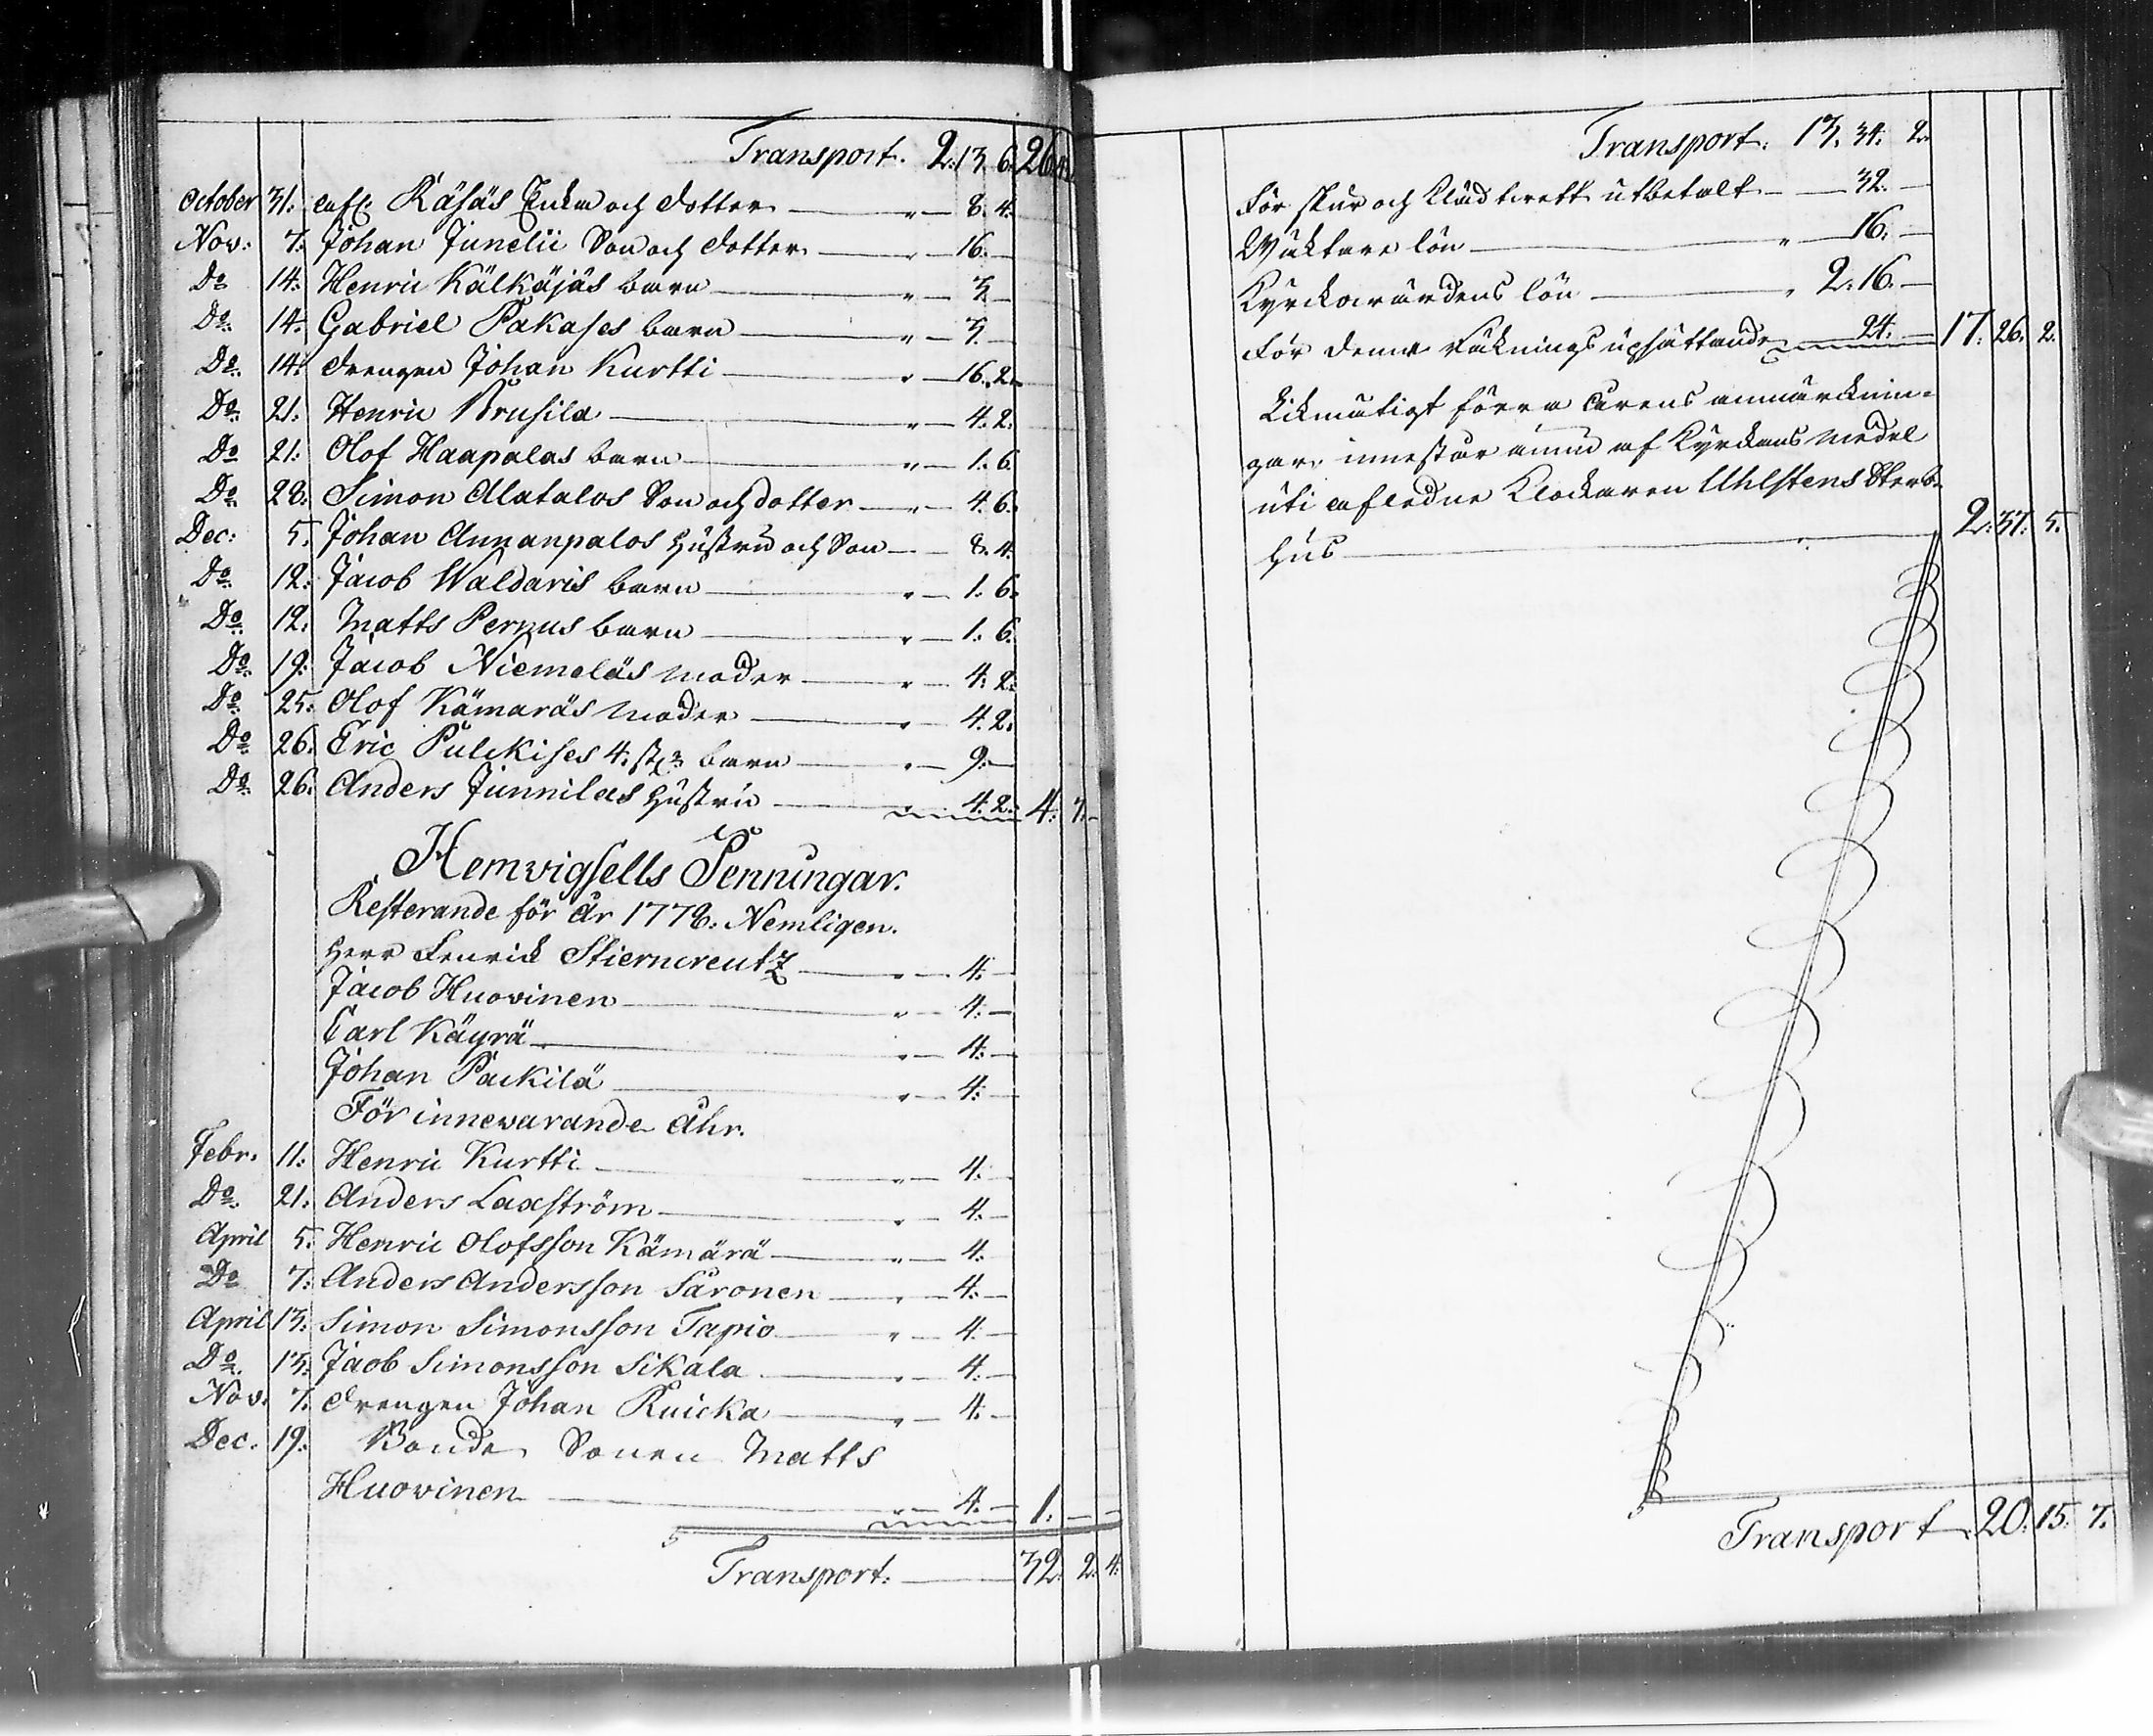 Transport. 2. 13. 6. 26.
October 31. aufl. Räsäs Enka och dotter — " — 8. 4.
Nov: 7. Johan Junelii Son och dotter — " — 16. —
Do 14. Henric Kälkäjäs barn — " — 3. —
Do 14. Gabriel Pakases barn — " — 3. —
Do 14. drengen Johan Kurtti — " — 16. 2.
Do 21. Henric Brusila — " — 4. 2.
Do 21. Olof Haapalas barn — " — 1. 6.
Do 28. Simon Alatalos Son och dotter — " — 4. 6.
Dec: 5. Johan Annanpalos hustru och Son — 8. 4.
Do 12. Jacob Waldaris barn — " — 1. 6.
Do 12. Matts Pernus barn — " — 1. 6.
Do 19. Jacob Niemeläs moder — " — 4. 2.
Do 25. Olof Kämäräs moder — " — 4. 2.
Do 26. Eric Pulckises 4. st. barn — " — 9. —
Do 26. Anders Junnilas hustru — " — 4. 2. 4. 7. —
Hemvigsells Penningar.
Resterande för År 1778. Nemligen.
Herr Fenrick Stierncreutz — " — 4. —
Jacob Huovinen — " — 4. —
Carl Käyrä — " — 4. —
Johan Packilä — " — 4. —
För innevarande Åhr.
Febr. 11. Henric Kurtti — " — 4. —
Do 21. Anders Laxström — " — 4. —
April 5. Henric Olofsson Kämärä — " — 4.
Do 7. Anders Andersson Saronen — " — 4. —
April 13. Simon Simonsson Tapio — " — 4. —
Do 13. Jacob Simonsson Sikala — " — 4. —
Nov. 7. drengen Johan Ruicka — " — 4. —
Dec. 19. Bonde Sonen Matts
Huovinen — " — 4. — 1. — —
Transport. — 32. 2. 4.
Transport. 13. 34. 2.
För skur och Klädtvätt utbetalt — 32. —
Wäktare lön — " — 16. —
Kyrckowärdens lön — " 2. 16. —
För denna Räknings upsättande — 24. — 17. 26. 2.
Likmätigt förra årens anmärcknin-
gar, innestår ännu af Kyrckans medel
uti afledne Klockaren Uhlstens Sterb-
hus — 2. 37. 5.
Transport 20. 15. 7.